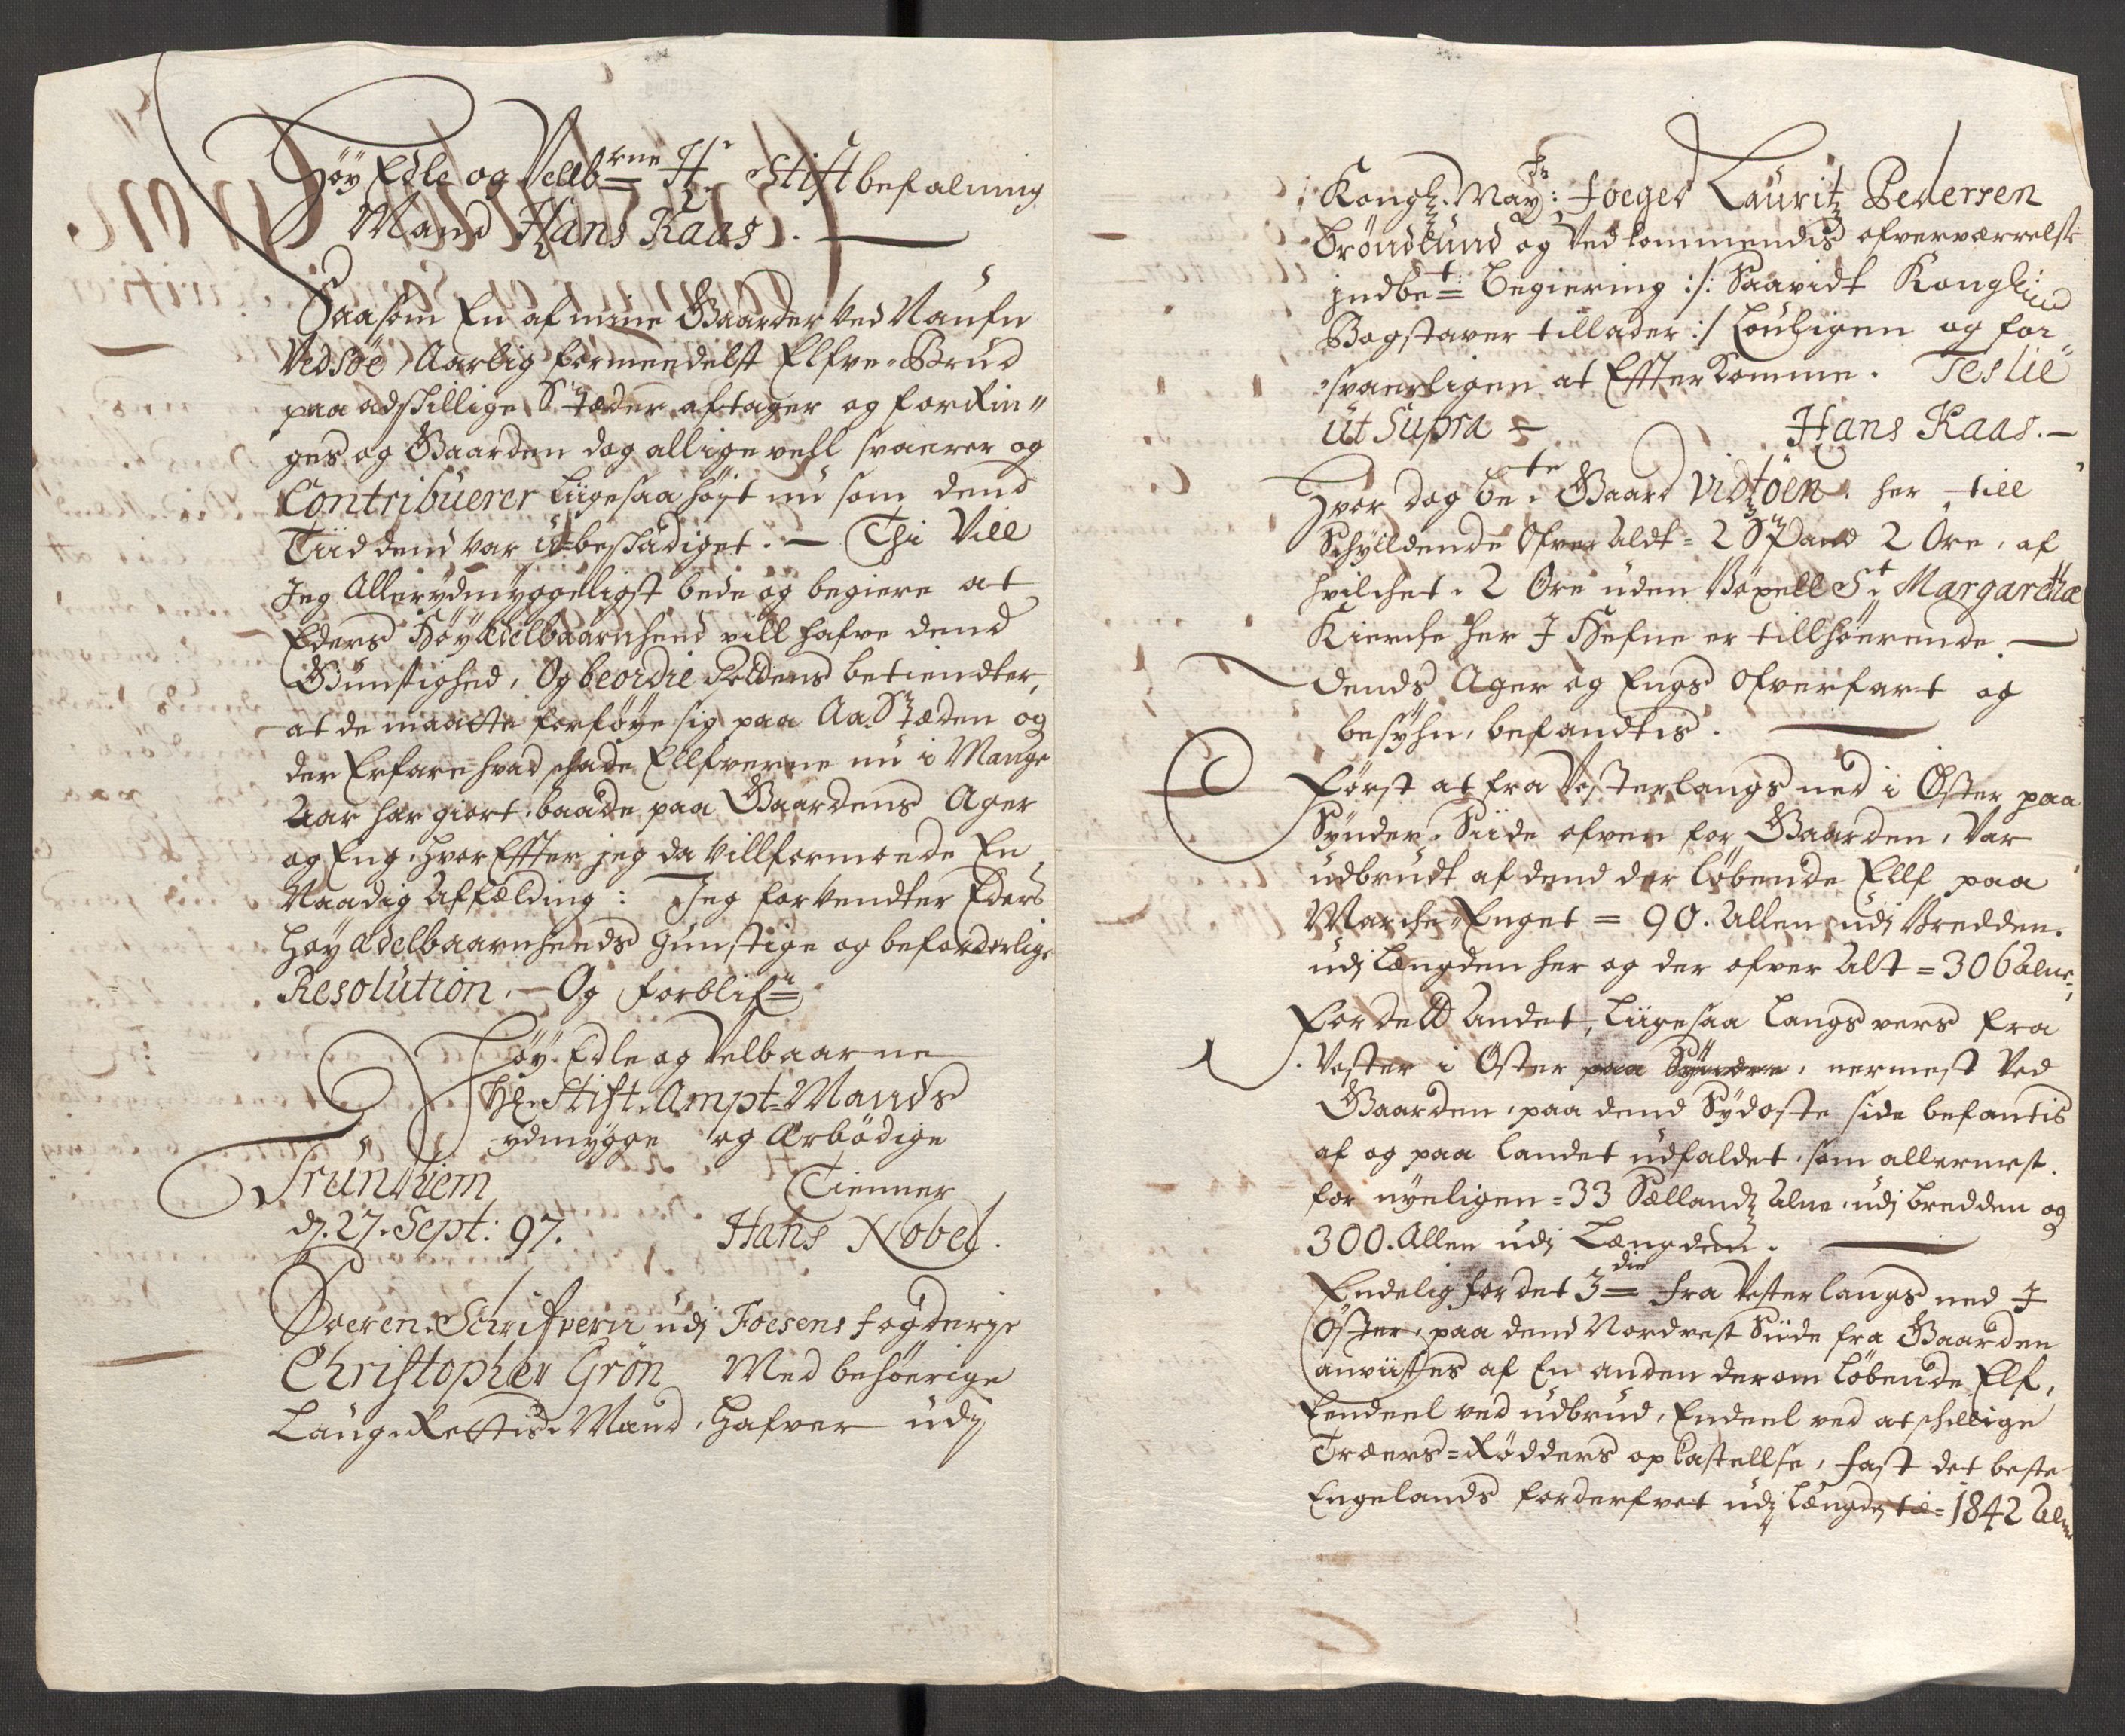 Høy Edle og Velb:rne Hr Stiftbefalning
Mand Hans Kaas.
Saasom En af mine Gaarder ved Naufn
Vedsøe, Aarlig formedelst Elfve-Brud
paa adskillige Stæder aftager og forRin„
ges og Gaarden dog alligevehl svarer og
Contribuerer liigesaa høyt nu som dend
Tiid dend var u-beskadiget. — Thi Vill
Jeg Allerydmyggeligst bede og begiere at
Eders Høyædelbaarnhed vill hafve dend
Gunstighed, Og beordre Jordens betiendter,
at de maatte forføye sig paa AaStæden og
der Erfare hvad schade Ellfverne nu i Mange
Aar har giort, baade paa Gaardens Ager
og Eng, hvorEffter jeg da vill formoede En
Naadig Affælding: Jeg forventer Eders
Høyædelbaarnheds gunstige og beforderlige
Resolution. — Og forblifr
Høy-Edle og Velbaarne
Hr. Stift-Ampt-Mands
ydmygge og Ærbødige
Trundhiem Tienner
d. 27. Sept: 97. Hans Nobel.
Soeren-Schrifveren udj Foesens fogderje
Christopher Grøn Med behøerige
Laug-Rettis-Mænd, hafver udj
Kongl. May: foeget Lauritz Pedersen
Brøndlund og Vedkommendis ofverværrelse
jndbet: begiering :/: Saavidt Kongl:
Bogstaver tillader :/ Louligen og for„
svarligen at EffterKomme. Teslie
ut Supra = Hans Kaas. —
Hvor dog bete Gaard Vidtøen. her till
Schyldende ofver Aldt = 2 Spand 2 Øre, af
hvilchet. 2 Øre uden Boxell St Margarethæ
Kierche her J Hefne er tillhøerende. —
Dends Ager og Engs Ofverfart og
besyhn, befandtis.
Først at fra Vesterlangs ned i Øster paa
Synder-Siide ofven for Gaarden, Var
udbrudt af dend der løbende Ellf paa
Marche-Enget = 90. Allen udj Bredden.
udj Længden her og der ofver Alt = 306 Alne,
For dett Andet, liigesaa langs vers fra
Vester i Øster paa Syndre, nermest Ved
Gaarden, paa dend Sydoste side befantis
af og paa Landet udfaldet, som allermest.
for nyeligen = 33 Sællandz Alne, udj bredden og
300. Allen udj Længden.
Endelig for det 3die fra Vesterlangs ned J
Øster, paa dend Nordvest Siide fra Gaarden
anviistes af En anden derom løbende Elf,
Eendeel ved udbrud, Endeel ved atschillige
Træers-Rødders opkastellse, fast det beste
Engelands forderfvet udj Længden til = 1842 Alne